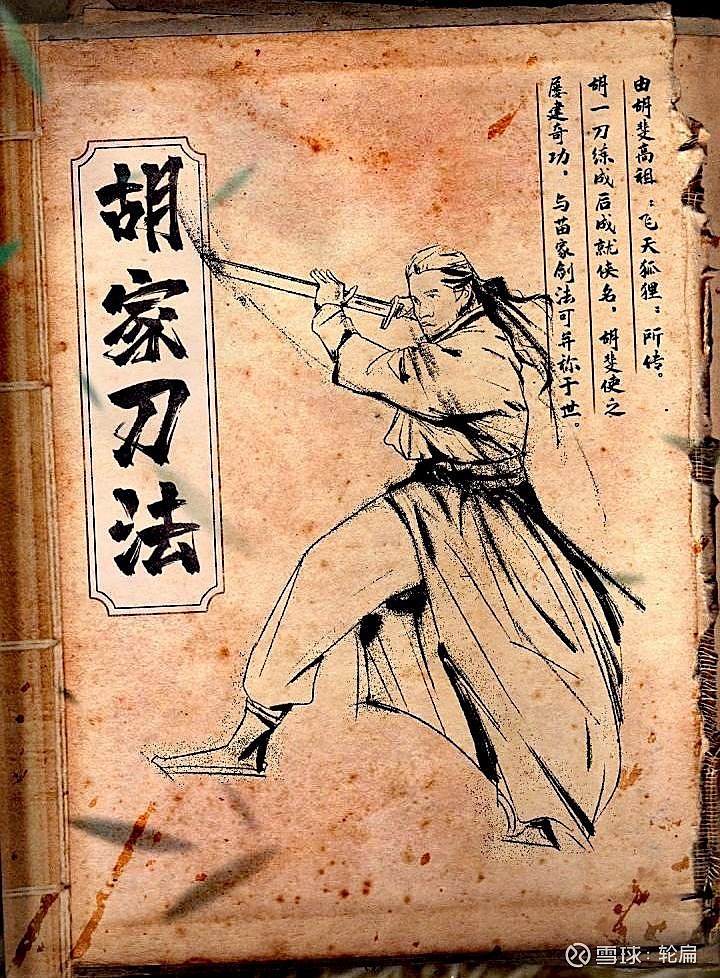 由胡斐高祖：飞天狐狸：所传。
胡一刀练成后成就侠名。胡斐使之
屡建奇功，与苗家剑法可并称于世。
胡家刀法
雪球：轮扁